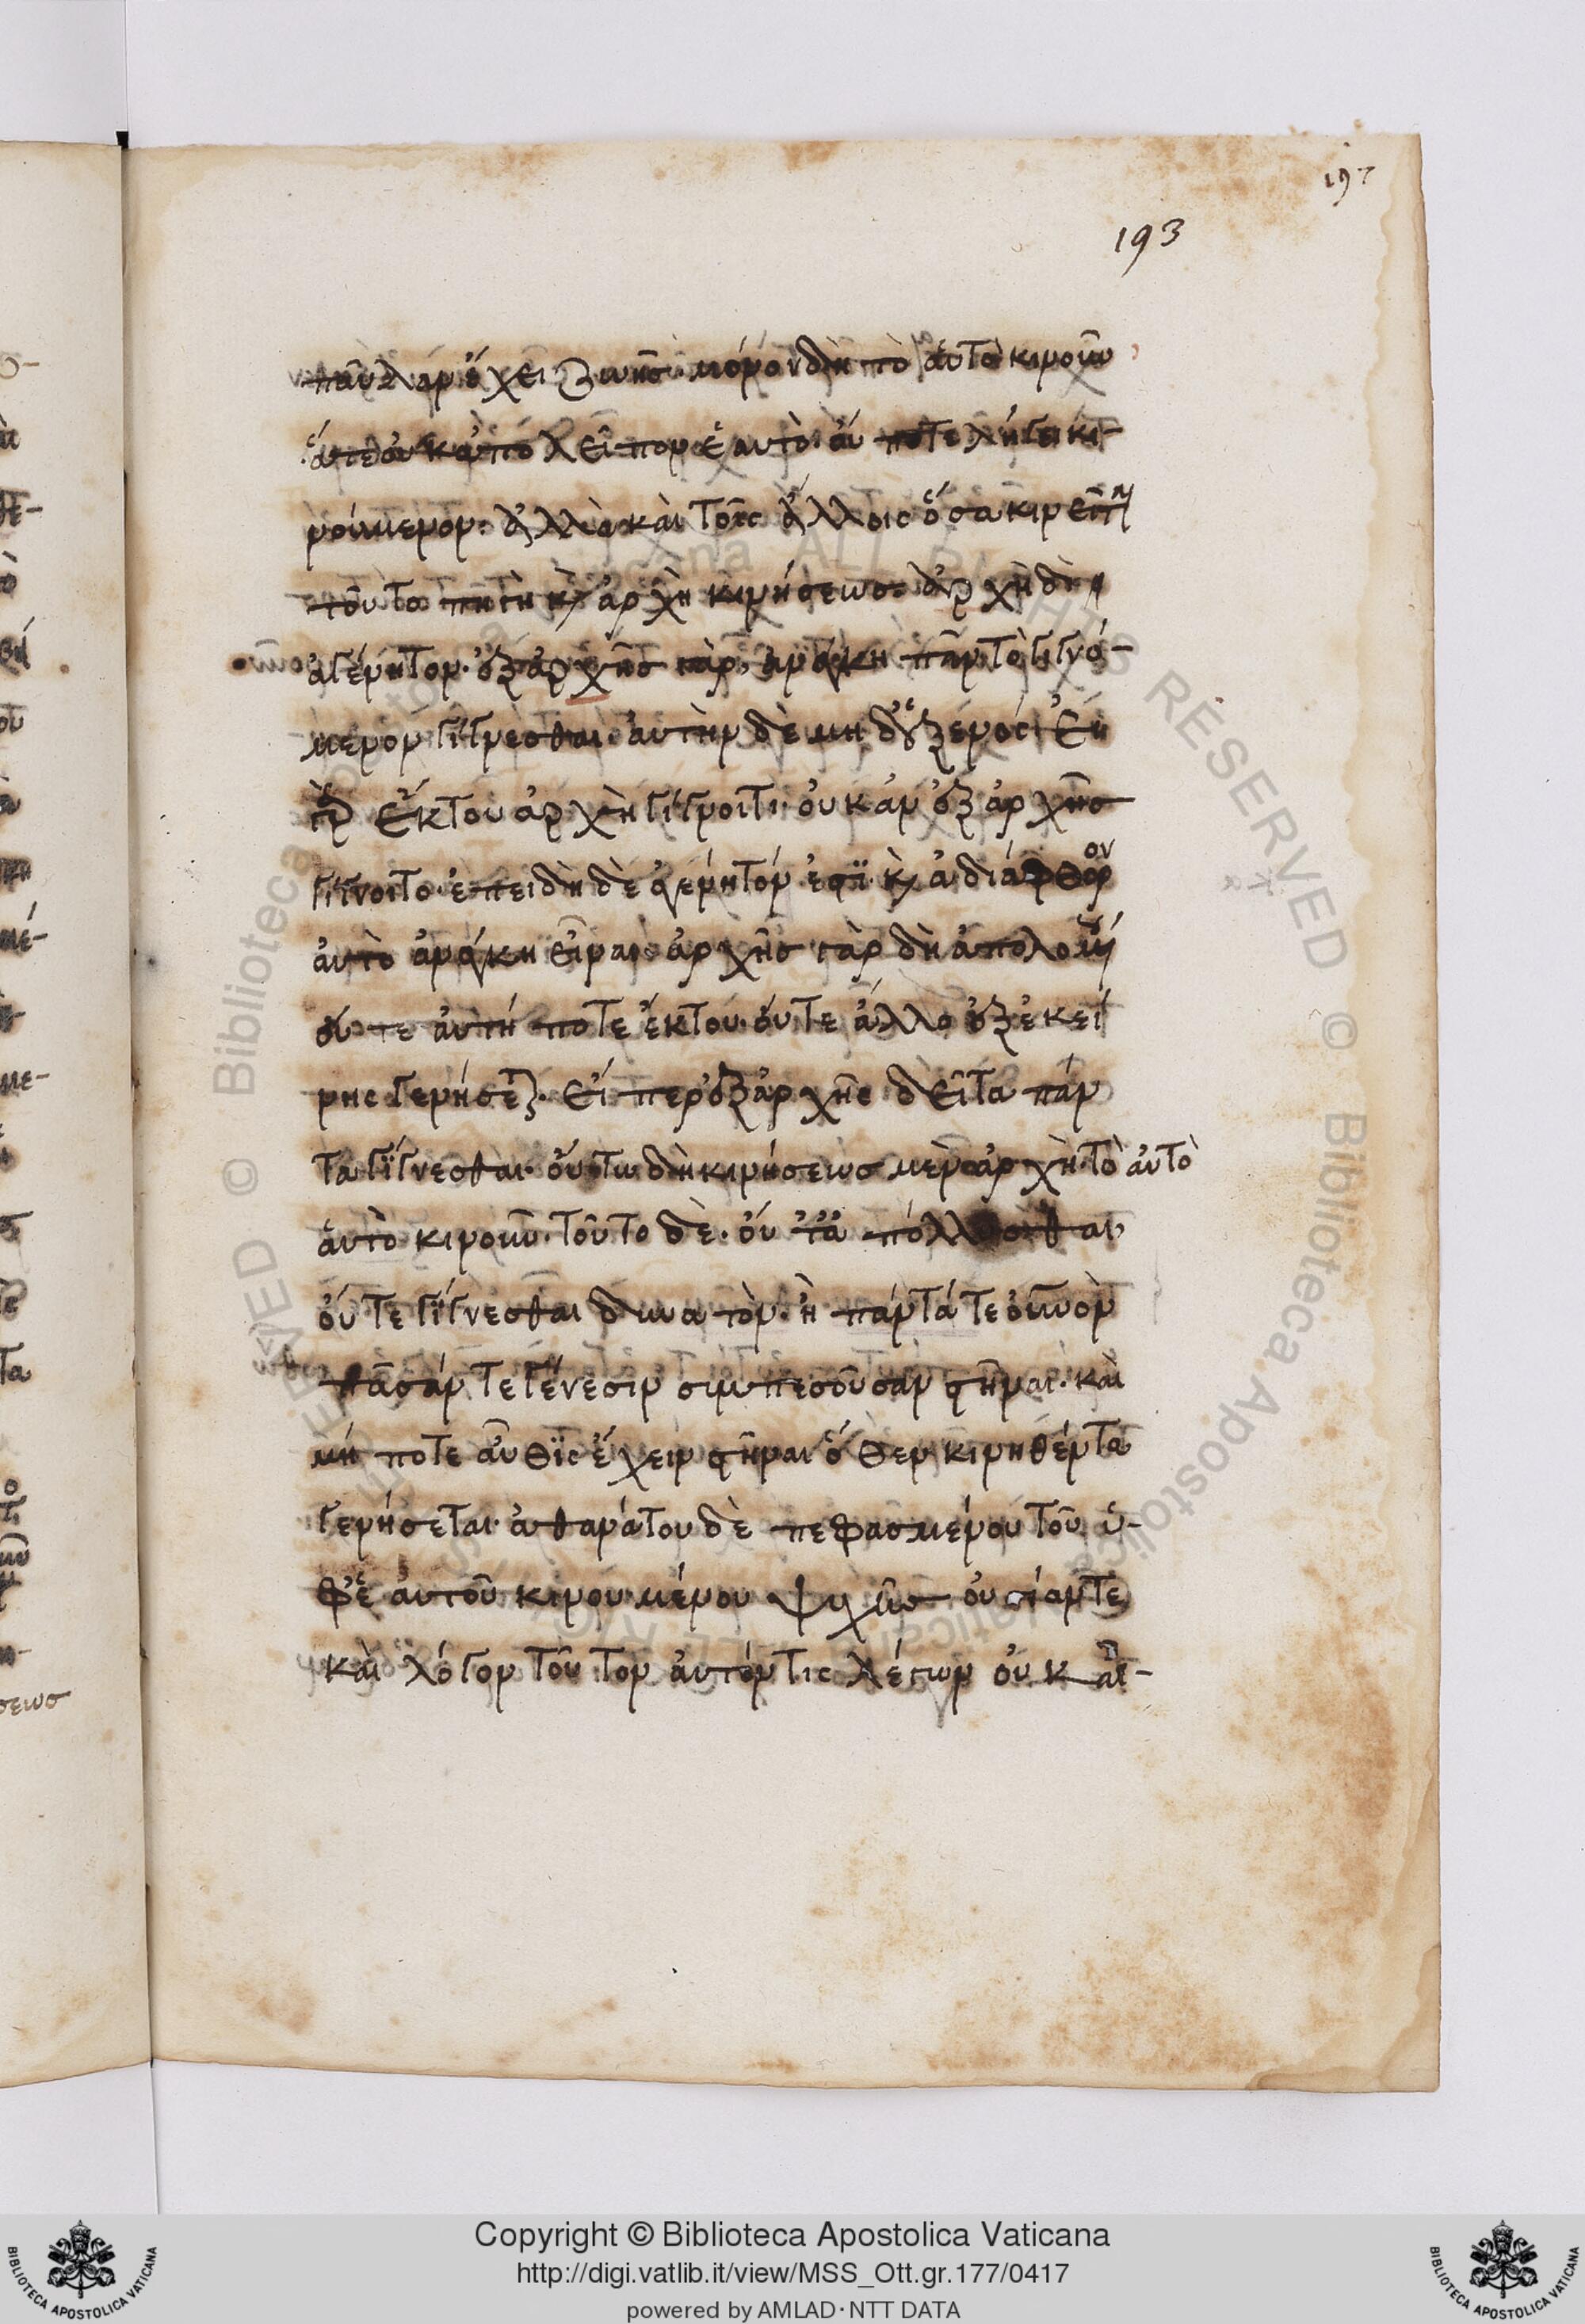 197
193
παῦλαν ἔχει ζωῆς· μόνον δὴ τὸ αὑτὸ κινοῦν
ἅτε οὐκ ἀπολεῖπον ἑαυτὸ· οὔ ποτε λήγει κι-
νούμενον· ἀλλὰ καὶ τοῖς ἄλλοις ὅσα κινεῖται
τοῦτο πηγὴ κ(αὶ) ἀρχὴ κινήσεως· ἀρχὴ δὲ
ἀγένητον· ἐξ ἀρχῆς γὰρ, ἀνάγκη πᾶν τὸ γιγνό-
μενον γίγνεσθαι· αὐτὴν δὲ μηδ' ἐξ ἑνός· εἰ
γὰρ ἔκ του ἀρχὴ γίγνοιτο· οὐκ ἂν ἐξ ἀρχῆς
γίγνοιτο· ἐπειδὴ δὲ ἀγένητόν ἐστι· κ(αὶ) ἀδιάφθορον
αὐτὸ ἀνάγκη εἶναι· ἀρχῆς γὰρ δὴ ἀπολομένης
οὔτε αὐτή ποτε ἔκ του· οὔτε ἄλλο ἐξ ἐκεί
νης γενήσεται· εἴπερ ἐξ ἀρχῆς δεῖ τὰ πάν
τα γίγνεσθαι· οὕτω δὴ κινήσεως μὲν ἀρχὴ· τὸ αὐτὸ
αὑτὸ κινοῦν· τοῦτο δὲ· οὔτ' ἀπόλλυσθαι,
οὔτε γίγνεσθαι δυνατόν· ἢ πάντά τε οὐνὸν
πᾶσάν τε γένεσιν συμπεσοῦσαν στῆναι· καὶ
μή ποτε αὖθις ἔχειν στῆναι ὅθεν κινηθέντα
γενήσεται· ἀθανάτου δὲ πεφασμένου τοῦ ὑ-
φ' ἑαυτοῦ κινουμένου ψυχῆς οὐσίαν τε
καὶ λόγον τοῦτον αὐτόν τις λέγων οὐκ αἰ-
© Biblioteca Apostolica Vaticana ALL RIGHTS RESERVED
Copyright © Biblioteca Apostolica Vaticana
http://digi.vatlib.it/view/MSS_Ott.gr.177/0417
powered by AMLAD·NTT DATA
BIBLIOTECA APOSTOLICA VATICANA
BIBLIOTECA APOSTOLICA VATICANA